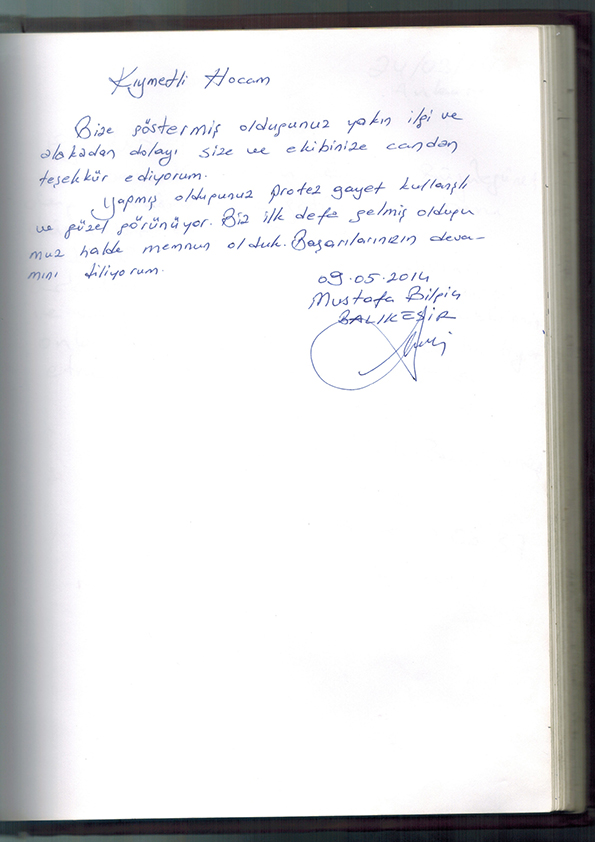 Kıymetli Hocam
Bize göstermiş olduğunuz yakın ilgi ve
alakadan dolayı size ve ekibinize candan
teşekkür ediyorum.
Yapmış olduğunuz protez gayet kullanışlı
ve güzel görünüyor. Biz ilk defa gelmiş olduğu
muz halde memnun olduk. Başarılarınızın deva-
mını diliyorum.
09.05.2014
Mustafa Bilgin
BALIKESİR